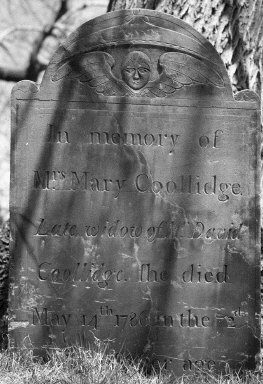 In memory of
Mrs Mary Coollidge
Late widow of Mr David
Coollidge. She died
May 14th 1786 in the 72d
age